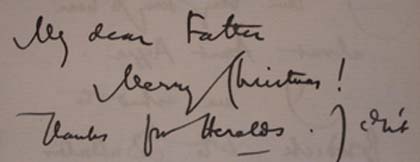 My dear Father
Merry Christmas!
Thanks for Heralds. I didn't